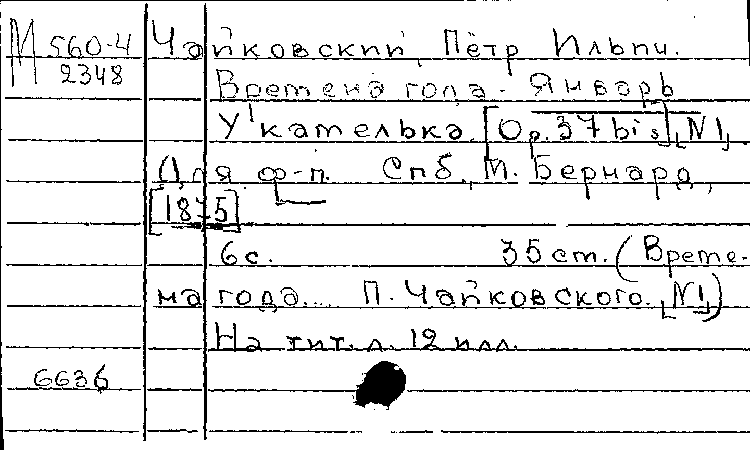 М 560-4 Чайковский, Пётр Ильич.
2348 Времена года. Январь
У кателька. [Op. 37 bis], [N1].
Для ф-п. Спб., М. Бернард,
[1875]
6 с. 35 см. (Време-
на года.... П. Чайковского. [N1])
На тит. л. 12 илл.
6636